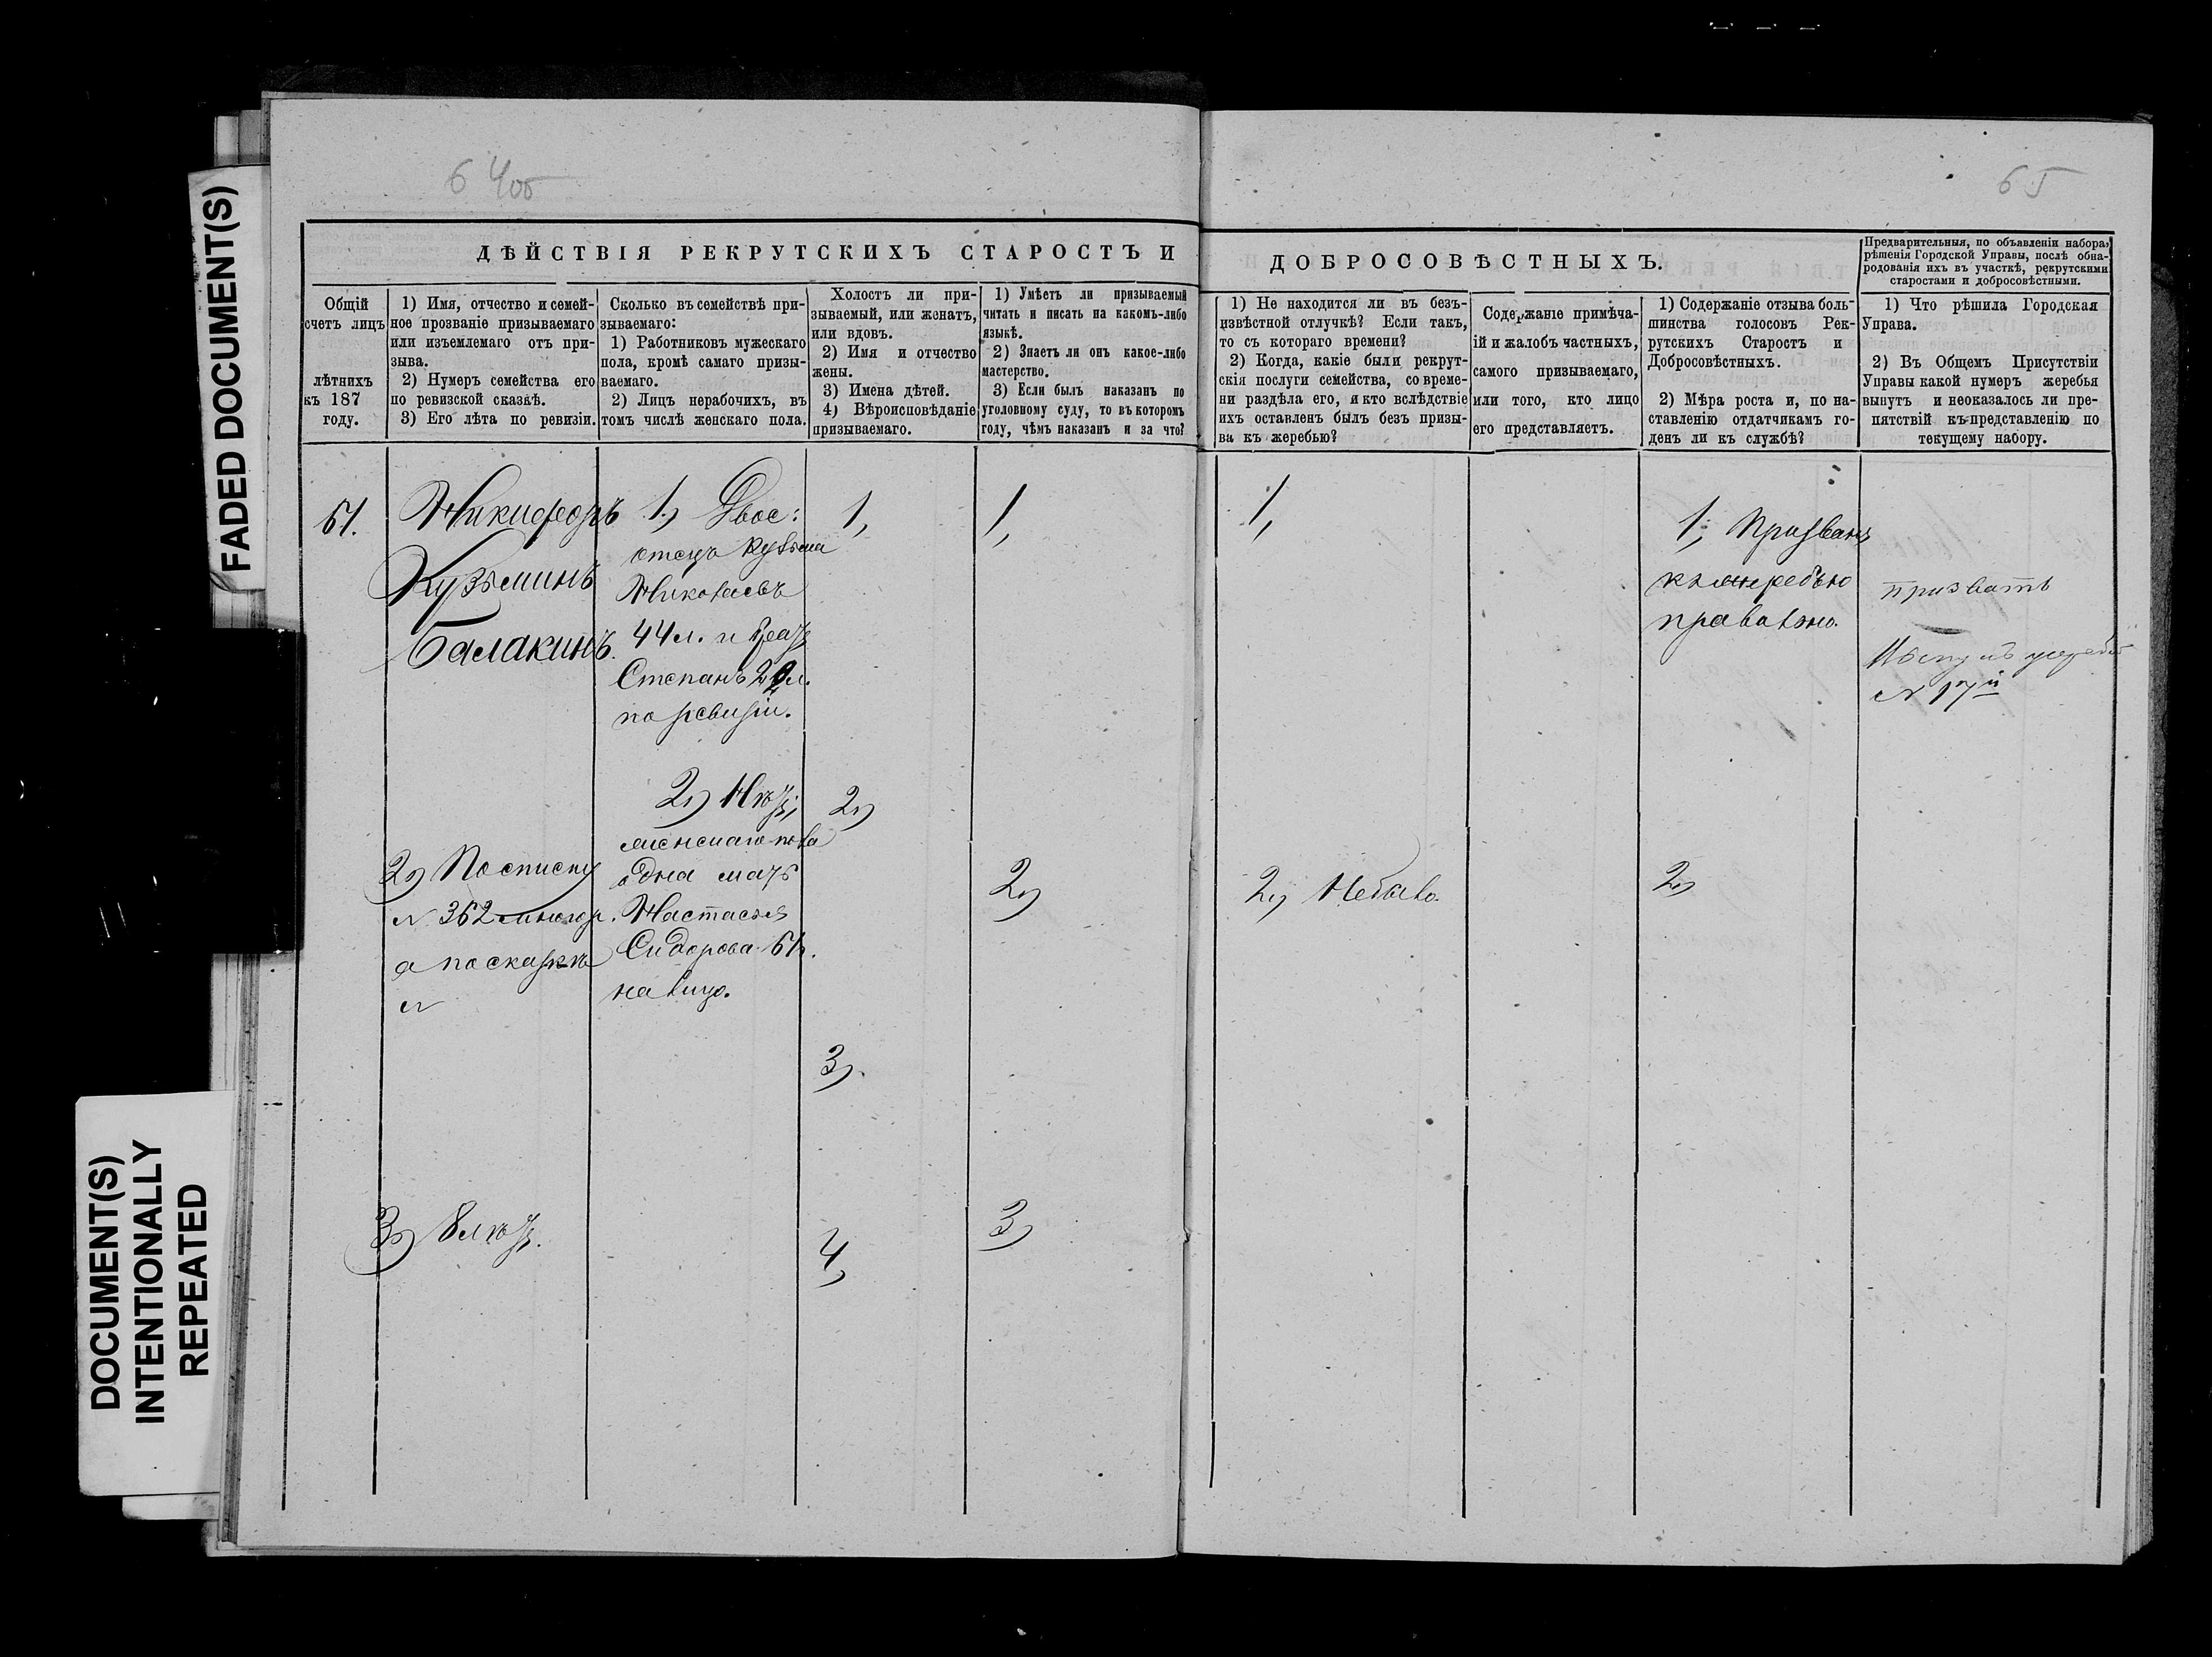 FADED DOCUMENT(S)
DOCUMENT(S)
INTENTIONALLY
REPEATED
64об
65
ДѢЙСТВІЯ РЕКРУТСКИХЪ СТАРОСТЪ И
ДОБРОСОВѢСТНЫХЪ.
Предварительныя, по объявленіи набора,
рѣшенія Городской Управы, послѣ обна-
родованія ихъ въ участкѣ, рекрутскими
старостами и добросовѣстными.
Общій
счетъ лицъ
лѣтнихъ
къ 187
году.
1) Имя, отчество и семей-
ное прозваніе призываемаго
или изъемлемаго отъ при-
зыва.
2) Нумеръ семейства его
по ревизской сказкѣ.
3) Его лѣта по ревизіи.
Сколько въ семействѣ при-
зываемаго:
1) Работниковъ мужескаго
пола, кромѣ самаго призы-
ваемаго.
2) Лицъ нерабочихъ, въ
томъ числѣ женскаго пола.
Холостъ ли при-
зываемый, или женатъ,
или вдовъ.
2) Имя и отчество
жены.
3) Имена дѣтей.
4) Вѣроисповѣданіе
призываемаго.
1) Умѣетъ ли призываемый
читать и писать на какомъ-либо
языкѣ.
2) Знаетъ ли онъ какое-либо
мастерство.
3) Если былъ наказанъ по
уголовному суду, то въ которомъ
году, чѣмъ наказанъ и за что?
1) Не находится ли въ безъ-
извѣстной отлучкѣ? Если такъ,
то съ котораго времени?
2) Когда, какіе были рекрут-
скія послуги семейства, со време-
ни раздѣла его, и кто вслѣдствіе
ихъ оставленъ былъ безъ призы-
ва къ жеребью?
Содержаніе примѣча-
ій и жалобъ частныхъ,
самого призываемаго,
или того, кто лицо
его представляетъ.
1) Содержаніе отзыва боль-
шинства голосовъ Рек-
рутскихъ Старостъ и
Добросовѣстныхъ.
2) Мѣра роста и, по на-
ставленію отдатчикамъ го-
денъ ли къ службѣ?
1) Что рѣшила Городская
Управа.
2) Въ Общемъ Присутствіи
Управы какой нумеръ жеребья
вынутъ и неоказалось ли пре-
пятствій къ представленію по
текущему набору.
61.
Никифоръ
Кузьминъ
Балакинъ.
2) По списку
№ 362
а по сказкѣ
№
3) 8 лѣтъ.
1) Двое:
отецъ Кузьма
Николаевъ
44 л. и братъ
Степанъ
по ревизіи.
2) Нѣтъ;
женскаго пола
одна мать
Настасья
Сидорова
на лицо.
1,
2)
3)
4,
1,
2)
3)
1,
2) Небыло.
1; Призванъ
къ жеребью
правильно.
2)
призвать
Вынулъ жребій
№ 17й